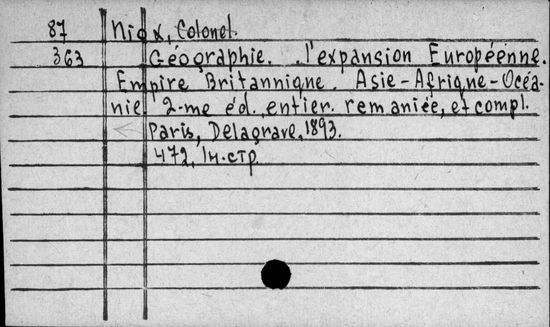 87 Niox, Colonel.
363 Géographie. l'expansion Européenne.
Empire Britannique. Asie-Afrique-Océa-
nie 2-me éd., entièr. remaniée, et compl.
Paris, Delagrave, 1893.
472, 1н.стр.